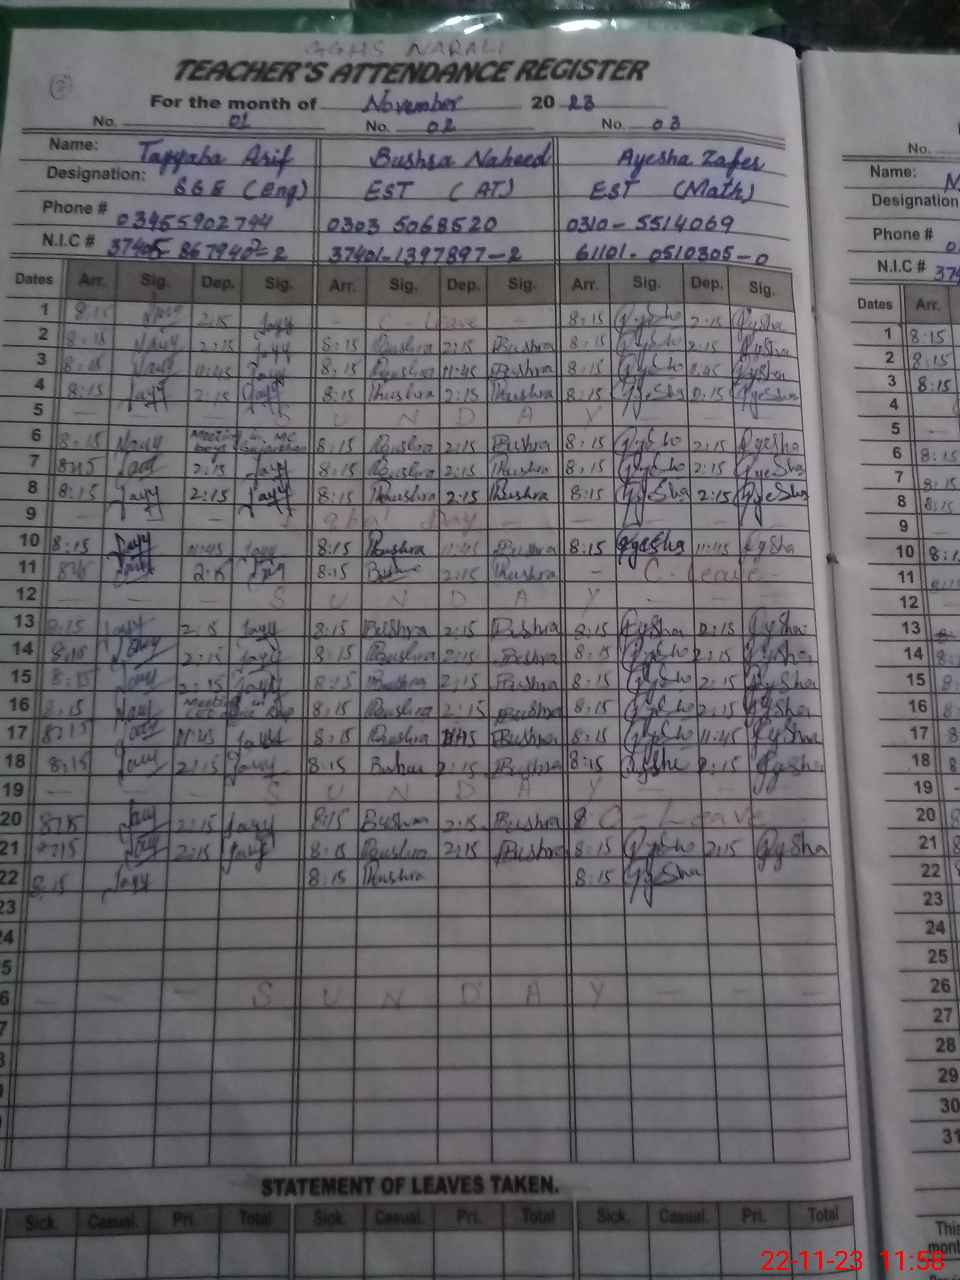 GGHS NARALI
TEACHER'S ATTENDANCE REGISTER
For the month of November 20 23
No. 01 No. 02 No. 03 No.
Name: Tayyaba Arif Bushra Naheed Ayesha Zafer Name:
Designation: SSE (Eng) EST (AT) EST (Math) Designation
Phone # 03455902744 0303 5068520 0310-5514069 Phone #
N.I.C # 37401-1397897-2 61101-0510305-0 N.I.C # 374
Dates Arr. Sig. Dep. Sig. Arr. Sig. Dep. Sig. Arr. Sig. Dep. Sig. Dates Arr.
1 8:15 2:15 Tayy - C-Leave - 8:15 Ayesha 2:15 Aysha 1 8:15
2 8:15 Tayy 2:15 Tayy 8:15 Bushra 2:15 Bushra 8:15 Ayesha 2:15 Aysha 2 8:15
3 8:15 Tayy 11:45 Tayy 8:15 Bushra 11:45 Bushra 8:15 Ayesha 11:45 Aysha 3 8:15
4 8:15 Tayy 2:15 Tayy 8:15 Bushra 2:15 Bushra 8:15 AyeSha 2:15 AyeSha 4
5 - - - S U N D A Y - - - 5 -
6 8:15 Tayy Meeting in 8:15 Bushra 2:15 Bushra 8:15 Ayesha 2:15 Ayesha 6 8:15
7 8:15 Tayy 2:15 Tayy 8:15 Bushra 2:15 Bushra 8:15 Ayesha 2:15 AyeSha 7 8:15
8 8:15 Tayy 2:15 Tayy 8:15 Bushra 2:15 Bushra 8:15 AySha 2:15 AyeSha 8 8:15
9 - - - Iqbal Day - - - - 9 -
10 8:15 Tayy 11:45 Tayy 8:15 Bushra 11:45 Bushra 8:15 Ayesha 11:45 AySha 10 8:1
11 8:15 Tayy 2:15 Tayy 8:15 Bushra 2:15 Bushra - C-Leave - 11 8:15
12 - - - S U N D A Y - - - 12 -
13 8:15 Tayy 2:15 Tayy 8:15 Bushra 2:15 Bushra 8:15 AySha 2:15 AySha 13
14 8:15 Tayy 2:15 Tayy 8:15 Bushra 2:15 Bushra 8:15 Ayesha 2:15 AySha 14 8:
15 8:15 Tayy 2:15 Tayy 8:15 Bushra 2:15 Bushra 8:15 Ayesha 2:15 AySha 15 8:
16 8:15 Tayy Meeting in 8:15 Bushra 2:15 Bushra 8:15 Ayesha 2:15 AySha 16 8:
17 8:15 Tayy 11:45 Tayy 8:15 Bushra 11:45 Bushra 8:15 Ayesha 11:45 AySha 17 8
18 8:15 Tayy 2:15 Tayy 8:15 Bushra 2:15 Bushra 8:15 Aysha 2:15 Aysha 18 8
19 - - - S U N D A Y - - - 19 -
20 8:15 Tayy 2:15 Tayy 8:15 Bushra 2:15 Bushra 8 C-Leave 20 8
21 8:15 Tayy 2:15 Tayy 8:15 Bushra 2:15 Bushra 8:15 Ayesha 2:15 AySha 21 8
22 8:15 Tayy 8:15 Bushra 8:15 AySha 22 8
23 23
24 24
5 25
6 - - - S U N D A Y - - - 26
7 27
8 28
29
30
31
STATEMENT OF LEAVES TAKEN.
Sick. Casual. Pri. Total Sick. Casual. Pri. Total Sick. Casual. Pri. Total
This
mont
22-11-23 11:58